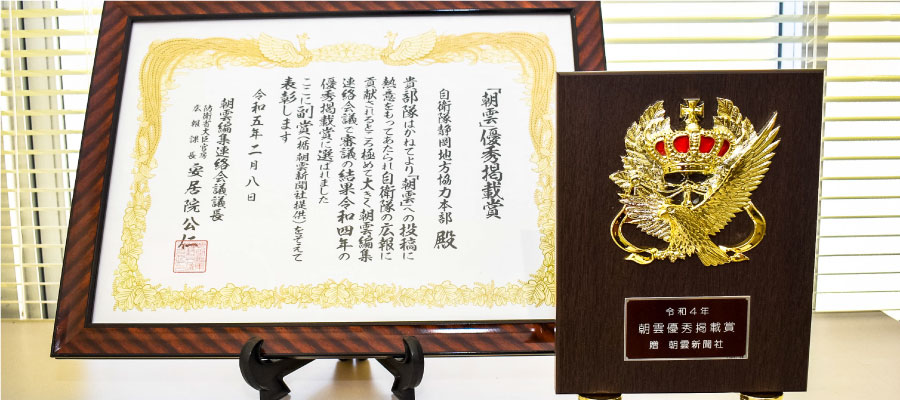 「朝雲」優秀掲載賞
自衛隊静岡地方協力本部 殿
貴部隊はかねてより「朝雲」への投稿に
熱意をもってあたられ自衛隊の広報に
貢献されるところ極めて大きく朝雲編集
連絡会議で審議の結果令和四年の
優秀掲載賞に選ばれました
ここに副賞(楯 朝雲新聞社提供)を添えて
表彰します
令和五年二月八日
朝雲編集連絡会議議長
防衛省大臣官房
広報課長 安居院公仁
令和4年
朝雲優秀掲載賞
贈 朝雲新聞社